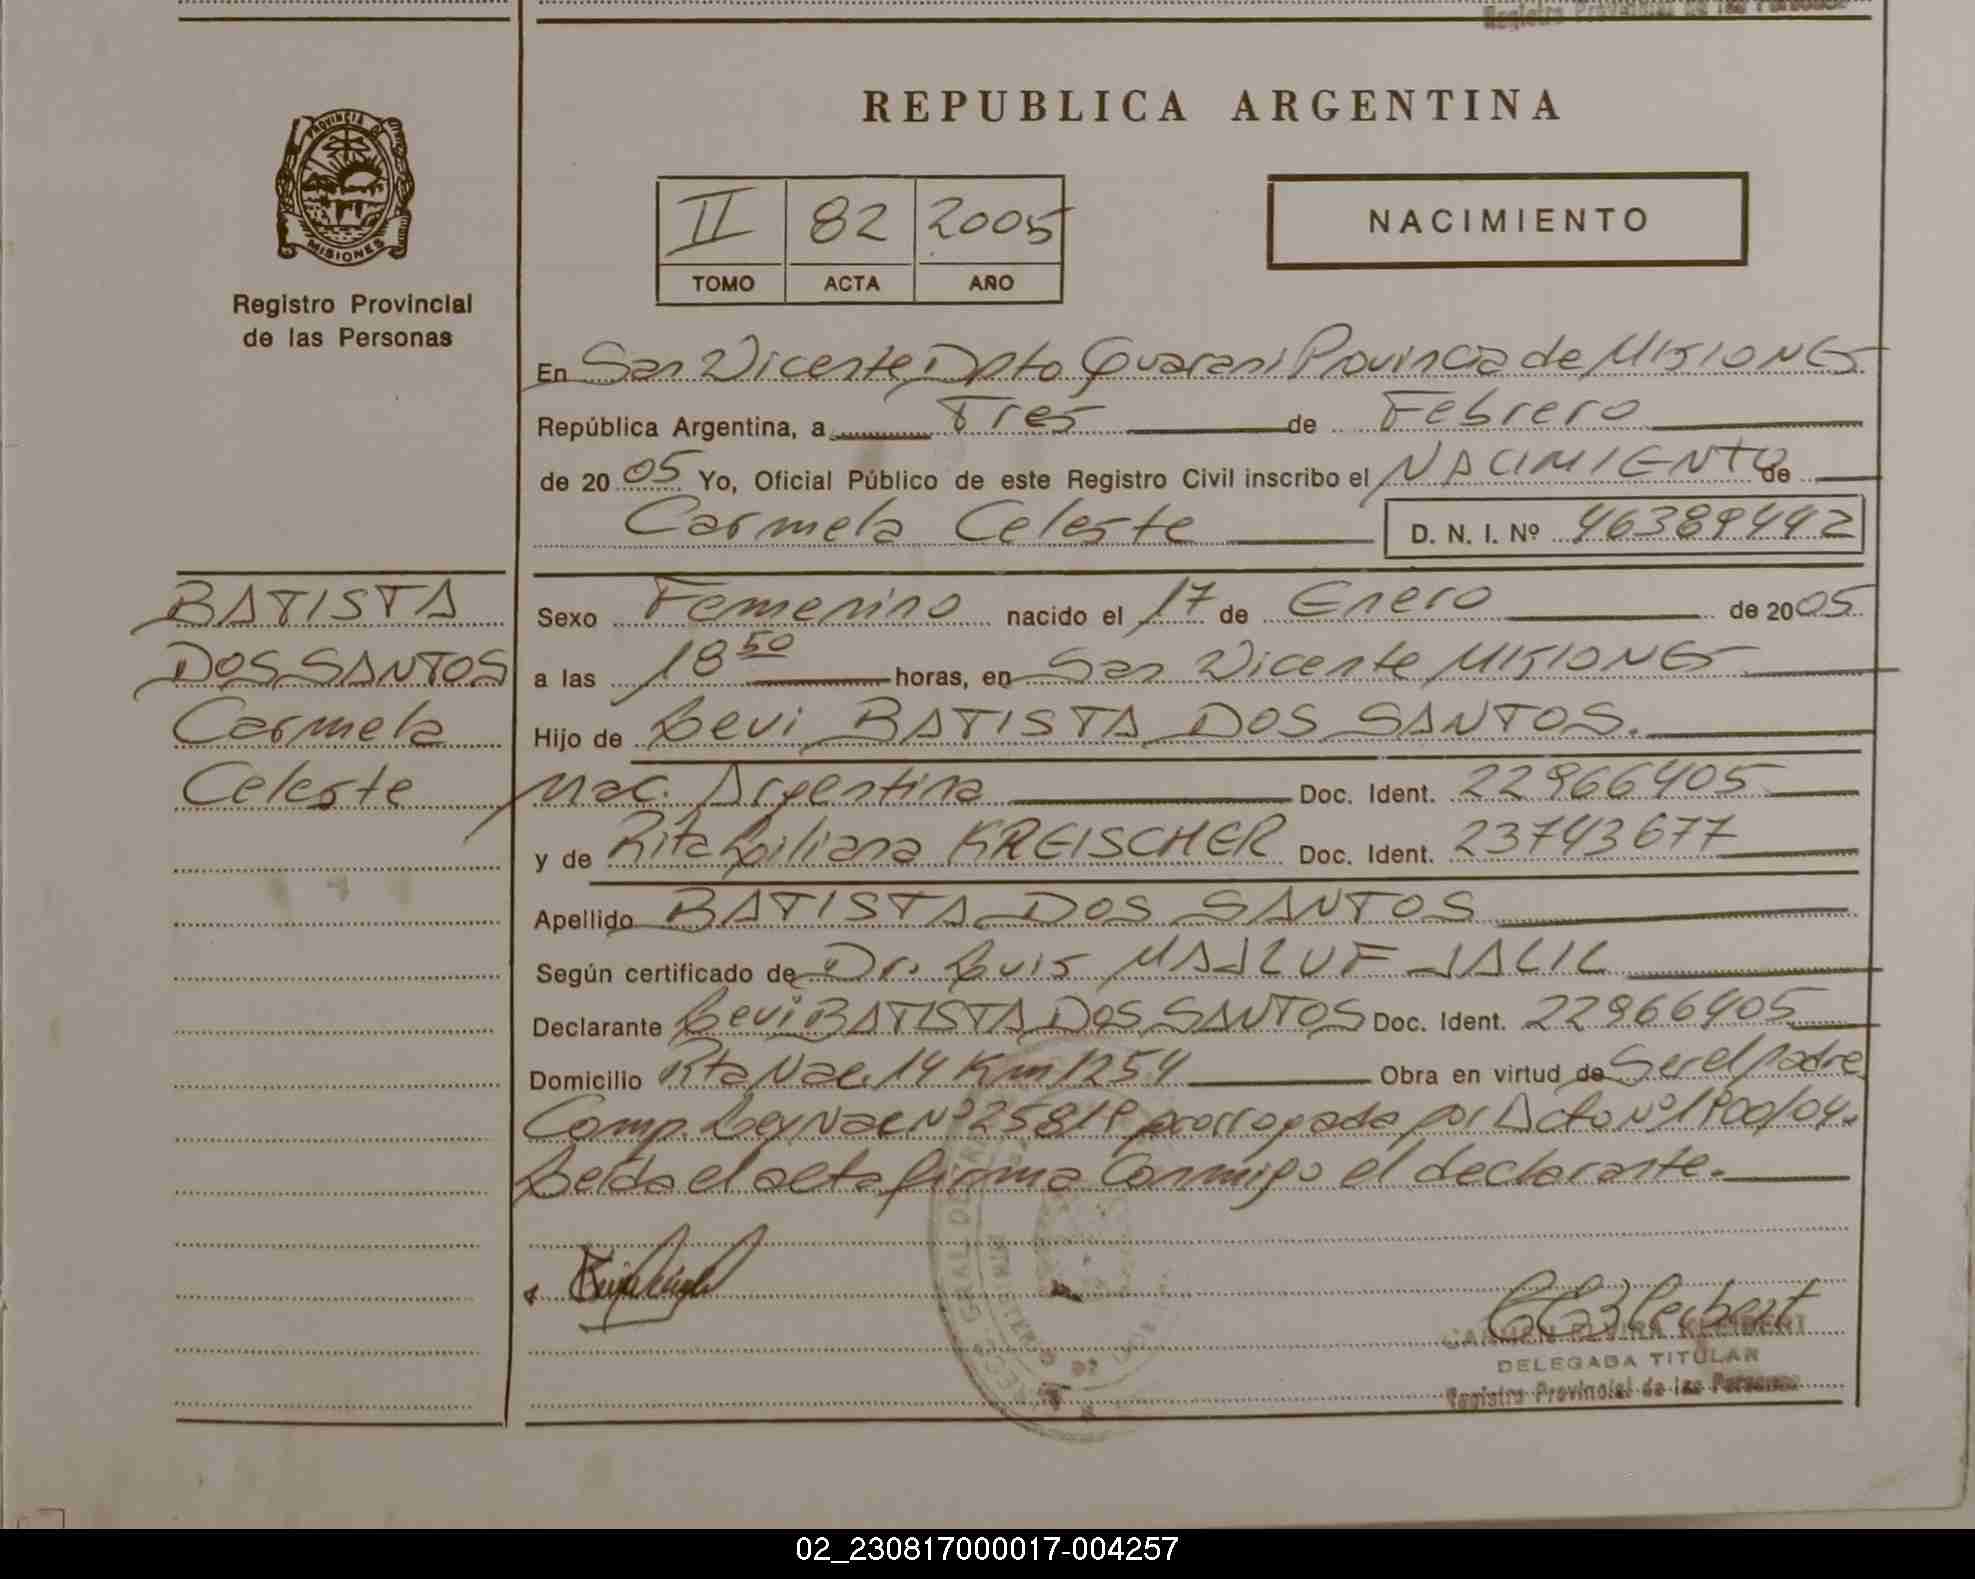 Registro Provincial de las Personas
REPUBLICA ARGENTINA
PROVINCIA DE
MISIONES
Registro Provincial
de las Personas
II 82 2005
TOMO ACTA AÑO
NACIMIENTO
En San Vicente Dpto Guarani Provincia de MISIONES
República Argentina, a Tres de Febrero
de 2005 Yo, Oficial Público de este Registro Civil inscribo el NACIMIENTO de
Carmela Celeste D. N. I. Nº 46389442
BATISTA
DOS SANTOS
Carmela
Celeste
Sexo Femenino nacido el 17 de Enero de 2005
a las 18 50 horas, en San Vicente MISIONES
Hijo de Levi BATISTA DOS SANTOS.
Nac. Argentina Doc. Ident. 22966405
y de Rita Liliana KREISCHER Doc. Ident. 23743677
Apellido BATISTA DOS SANTOS
Según certificado de Dr. Luis MAJLUF JALIL
Declarante Levi BATISTA DOS SANTOS Doc. Ident. 22966405
Domicilio Rta Nac. 14 Km 1254 Obra en virtud de Ser el padre
Comp. Ley Nac Nº 25819 prorrogada por Dcto Nº 1900/04.
Leída el acta firma Conmigo el declarante.
CARMEN ELVIRA KLEIBERT
DELEGADA TITULAR
Registro Provincial de las Personas
02_230817000017-004257